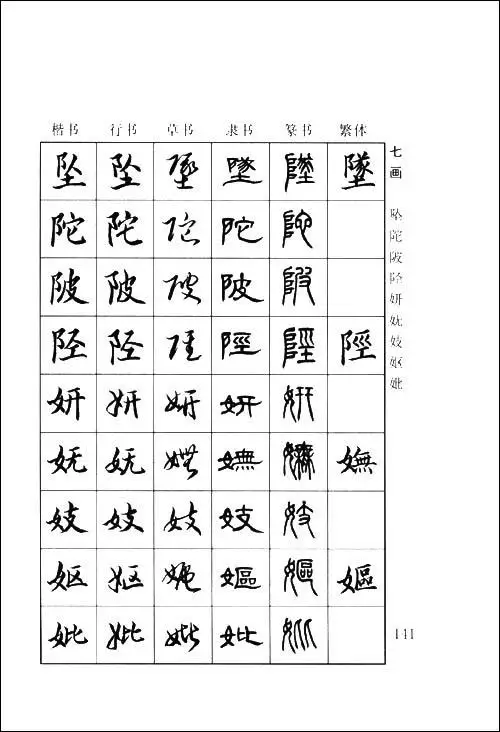 楷书 行书 草书 隶书 篆书 繁体
坠 坠 墜 墜 墜 墜
陀 陀 陀 陀 陀
陂 陂 陂 陂 陂
陉 陉 陉 陘 陘 陘
妍 妍 妍 妍 妍
妩 妩 嫵 嫵 嫵 嫵
妓 妓 妓 妓 妓
妪 妪 嫗 嫗 嫗 嫗
妣 妣 妣 妣 妣
七画 坠陀陂陉妍妩妓妪妣
141